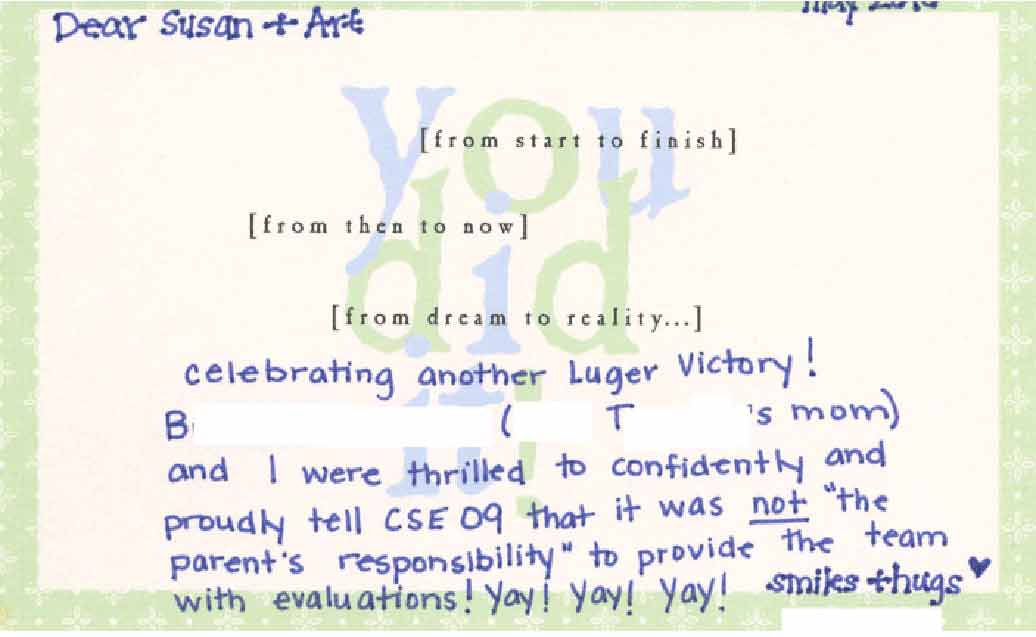 Dear Susan + Art
May
you
[from start to finish]
[from then to now]
did
[from dream to reality...]
it!
celebrating another Luger Victory!
B ( T 's mom)
and I were thrilled to confidently and
proudly tell CSE 09 that it was not "the
parent's responsibility" to provide the team
with evaluations! Yay! Yay! Yay! smiles + hugs